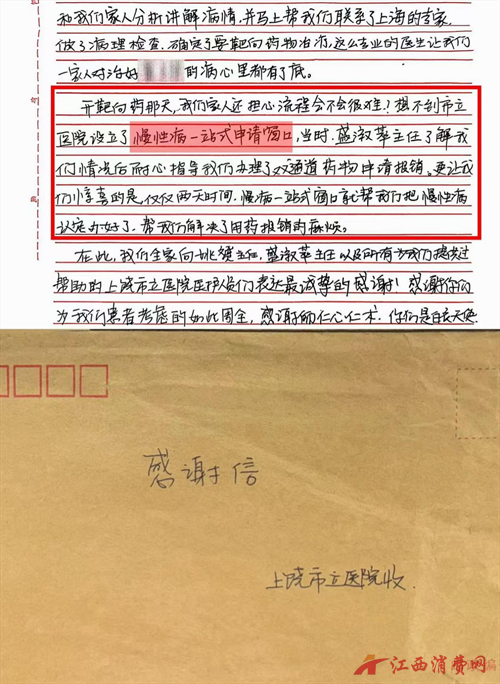 和我们家人分析讲解病情，并马上帮我们联系了上海的专家，
做了病理检查，确定了要靶向药物治疗，这么专业的医生让我们
一家人对治好 的病心里都有了底。
开靶向药那天，我们家人还担心流程会不会很难？想不到市立
医院设立了慢性病一站式申请窗口，当时，蓝淑苹主任了解我
们情况后耐心指导我们办理了双通道药物申请报销。更让我
们惊喜的是仅仅两天时间，慢病一站式窗口就帮我们把慢性病
认定办好了，帮我们解决了用药报销的麻烦。
在此，我们全家向 主任，蓝淑苹主任以及所有为我们提过
帮助的上饶市立医院医护人员们表达最诚挚的感谢！感谢你们
为我们患者考虑的如此周全，感谢师仁心仁术，你们是白衣天使
感谢信
上饶市立医院收
江西消费网